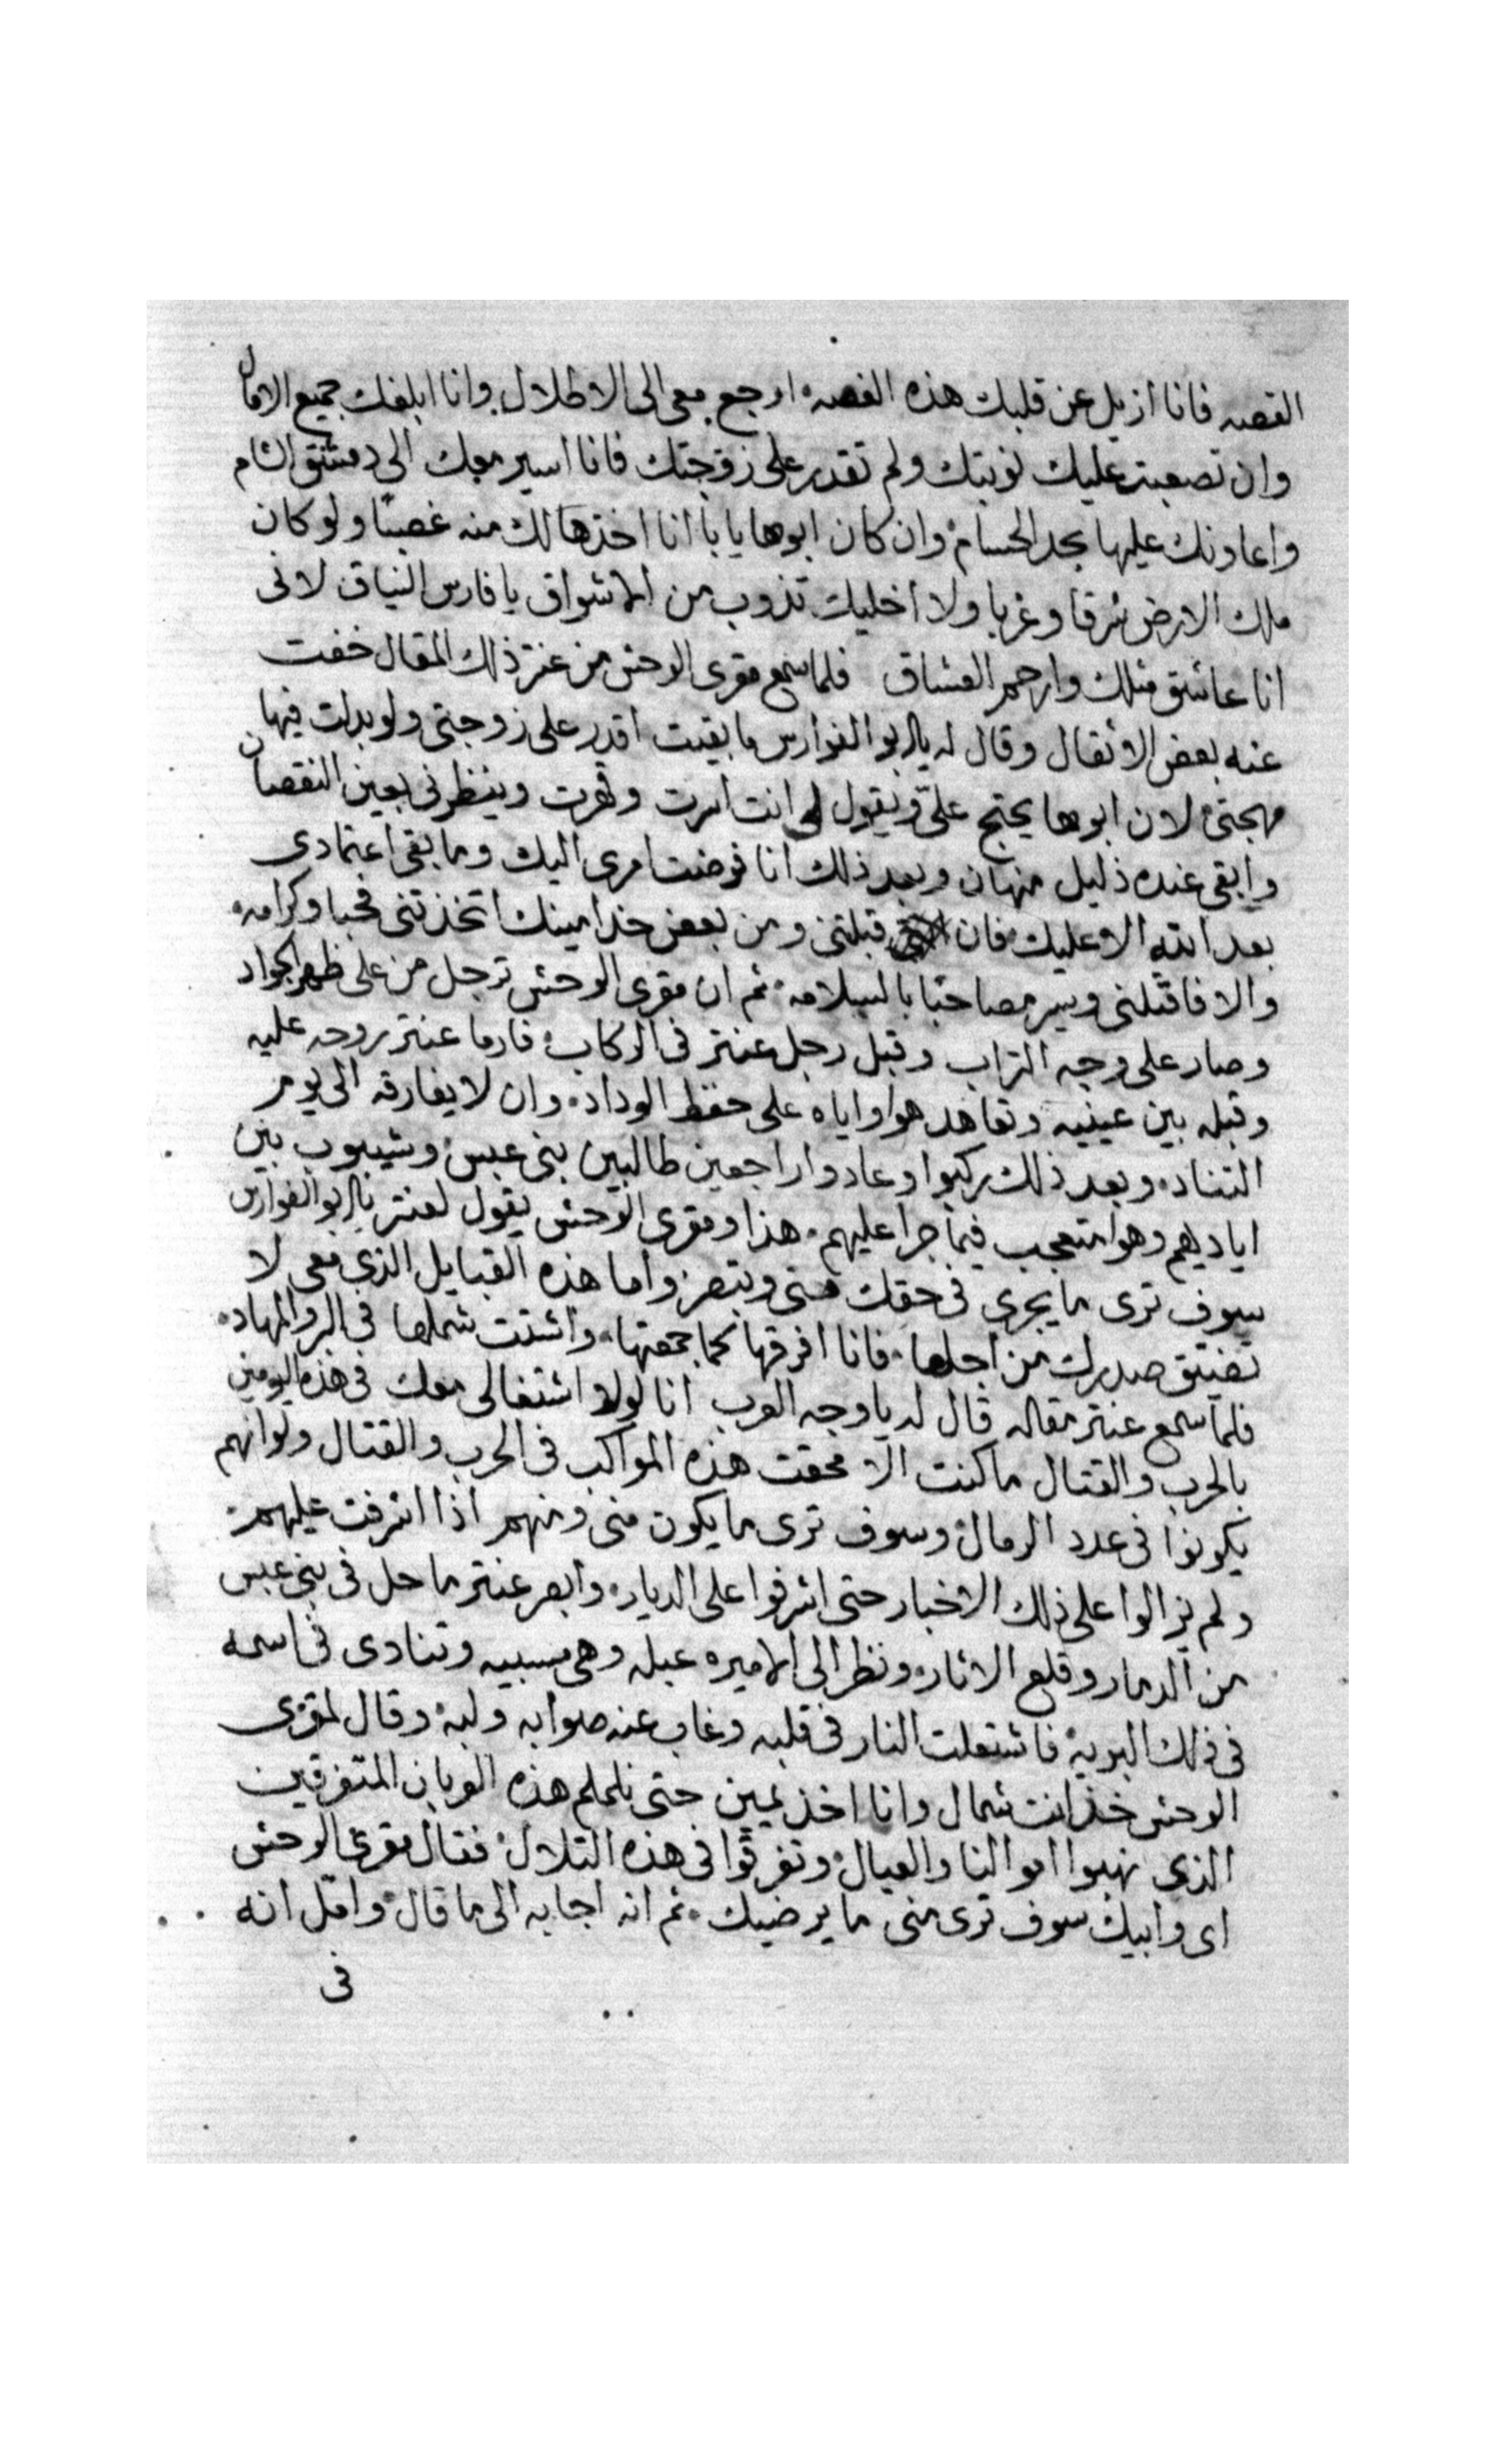 القصه فانا ازيل عن قلبك هذه الغصه ارجع معى الى الاطلال وانا ابلغك جميع الامال
وان تصعبت عليك نوبتك ولم تقدر على زوجتك فانا اسير معك الى دمشق الشام
واعاونك عليها بحد الحسام وان كان ابوها يابا انا اخذها لك منه غصبًا ولو كان
ملك الارض شرقا وغربا ولا اخليك تذوب من الاشواق يا فارس النياق لانى
انا عاشق مثلك وارحم العشاق فلما سمع مقرى الوحش من عنتر ذلك المقال خفت
عنه بعض الاثقال وقال له يابو الفوارس ما بقيت اقدر على زوجتى ولو بدلت فيها
مهجتى لان ابوها يحتج علىّ ويقول لى انت اسرت وقهرت وينظرنى بعين النقصان
وابقى عنده ذليل منهان وبعد ذلك انا فوضت امرى اليك وما بقى اعتمادى
بعد الله الا عليك فان قبلتنى ومن بعض خدامينك اتخذتنى فحبا وكرامه
والا فاقتلنى وسير مصاحبًا بالسلامه ثم ان مقرى الوحش ترجل من على ظهر الجواد
وصار على وجه التراب وقبل رجل عنتر فى الركاب فارما عنتر بروحه عليه
وقبله بين عينيه وتعاهد هوا واياه على حفظ الوداد وان لا يفارقه الى يوم
التناد وبعد ذلك ركبوا وعادوا راجعين طالبين بنى عبس وشيبوب بين
اياديهم وهوا متعجب فيما جرا عليهم هذا ومقرى الوحش يقول لعنتر يابو الفوارس
سوف ترى ما يجرى فى حقك منى وتبصر واما هذه القبايل الذى معى لا
تضيق صدرك من اجلها فانا افرقها كما جمعتها واشتت شملها فى البر والمهاد
فلما سمع عنتر مقاله قال له يا وجه العرب انا لولا اشتغالى معك فى هذه اليومين
بالحرب والقتال ما كنت الا محقت هذه المواكب فى الحرب والقتال ولو انهم
يكونوا فى عدد الرمال وسوف ترى ما يكون منى ومنهم اذا اشرفت عليهم
ولم يزالوا على ذلك الاخبار حتى اشرفوا على الديار وابصر عنتر ما حل فى بنى عبس
من الدمار وقلع الاثار ونظر الى الاميره عبله وهى مسبيه وتنادى فى اسمه
فى ذلك البريه فاشتعلت النار فى قلبه وغاب عنه صوابه ولبه وقال لمقرى
الوحش خذ انت شمال وانا اخذ يمين حتى نلملم هذه العربان المتفرقين
الذى نهبوا اموالنا والعيال وتفرقوا فى هذه التلال فقال مقرى الوحش
اى وابيك سوف ترى منى ما يرضيك ثم انه اجابه الى ما قال وامّل انه
فى